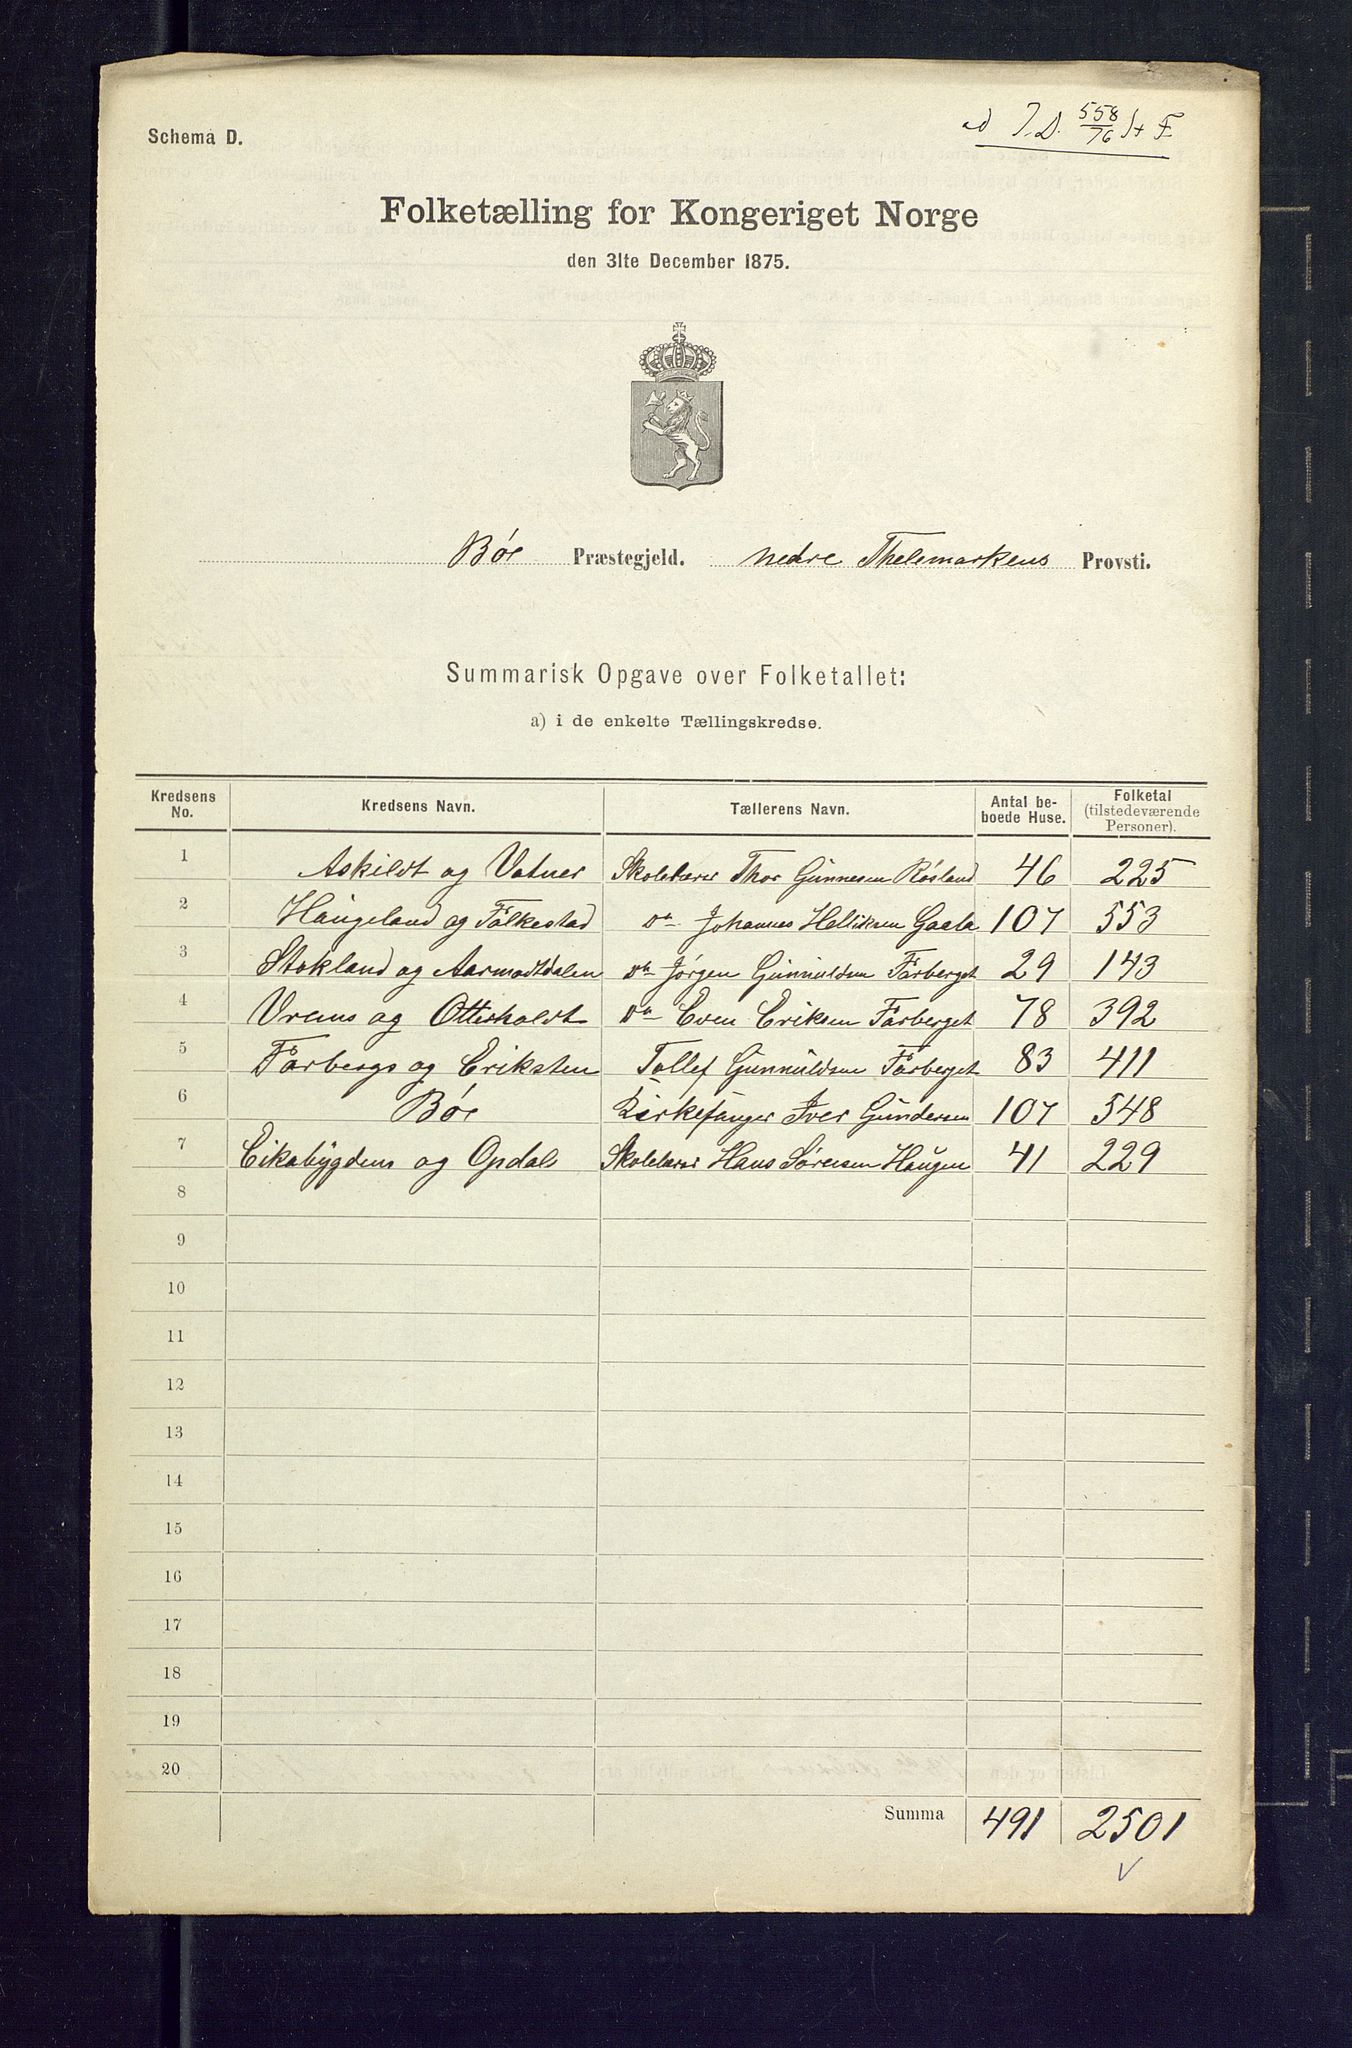 ad J.D. 558/76 St F.
Schema D.
Folketælling for Kongeriget Norge
den 31te December 1875.
Bøe Præstegjeld. nedre Thelemarkens Provsti.
Summarisk Opgave over Folketallet:
a) i de enkelte Tællingskredse.
Kredsens No. Kredsens Navn. Tællerens Navn. Antal beboede Huse. Folketal (tilstedeværende Personer).
1 Askildt og Vatner Skolelærer Thor Gunnesen Røsland 46 225
2 Haugeland og Folkestad do Johannes Helliksen Gaala 107 553
3 Stokland og Aarmodtdalen do Jørgen Gunnuldsen Farberget 29 143
4 Vreims og Otterholdt do Even Eriksen Farberget 78 392
5 Farbergs og Eriksten Tollef Gunnuldsen Farberget 83 411
6 Bøe Kirkesanger Iver Gundersen 107 548
7 Eikabygdens og Opdals Skolelærer Hans Sørensen Haugen 41 229
8
9
10
11
12
13
14
15
16
17
18
19
20
Summa 491 2501